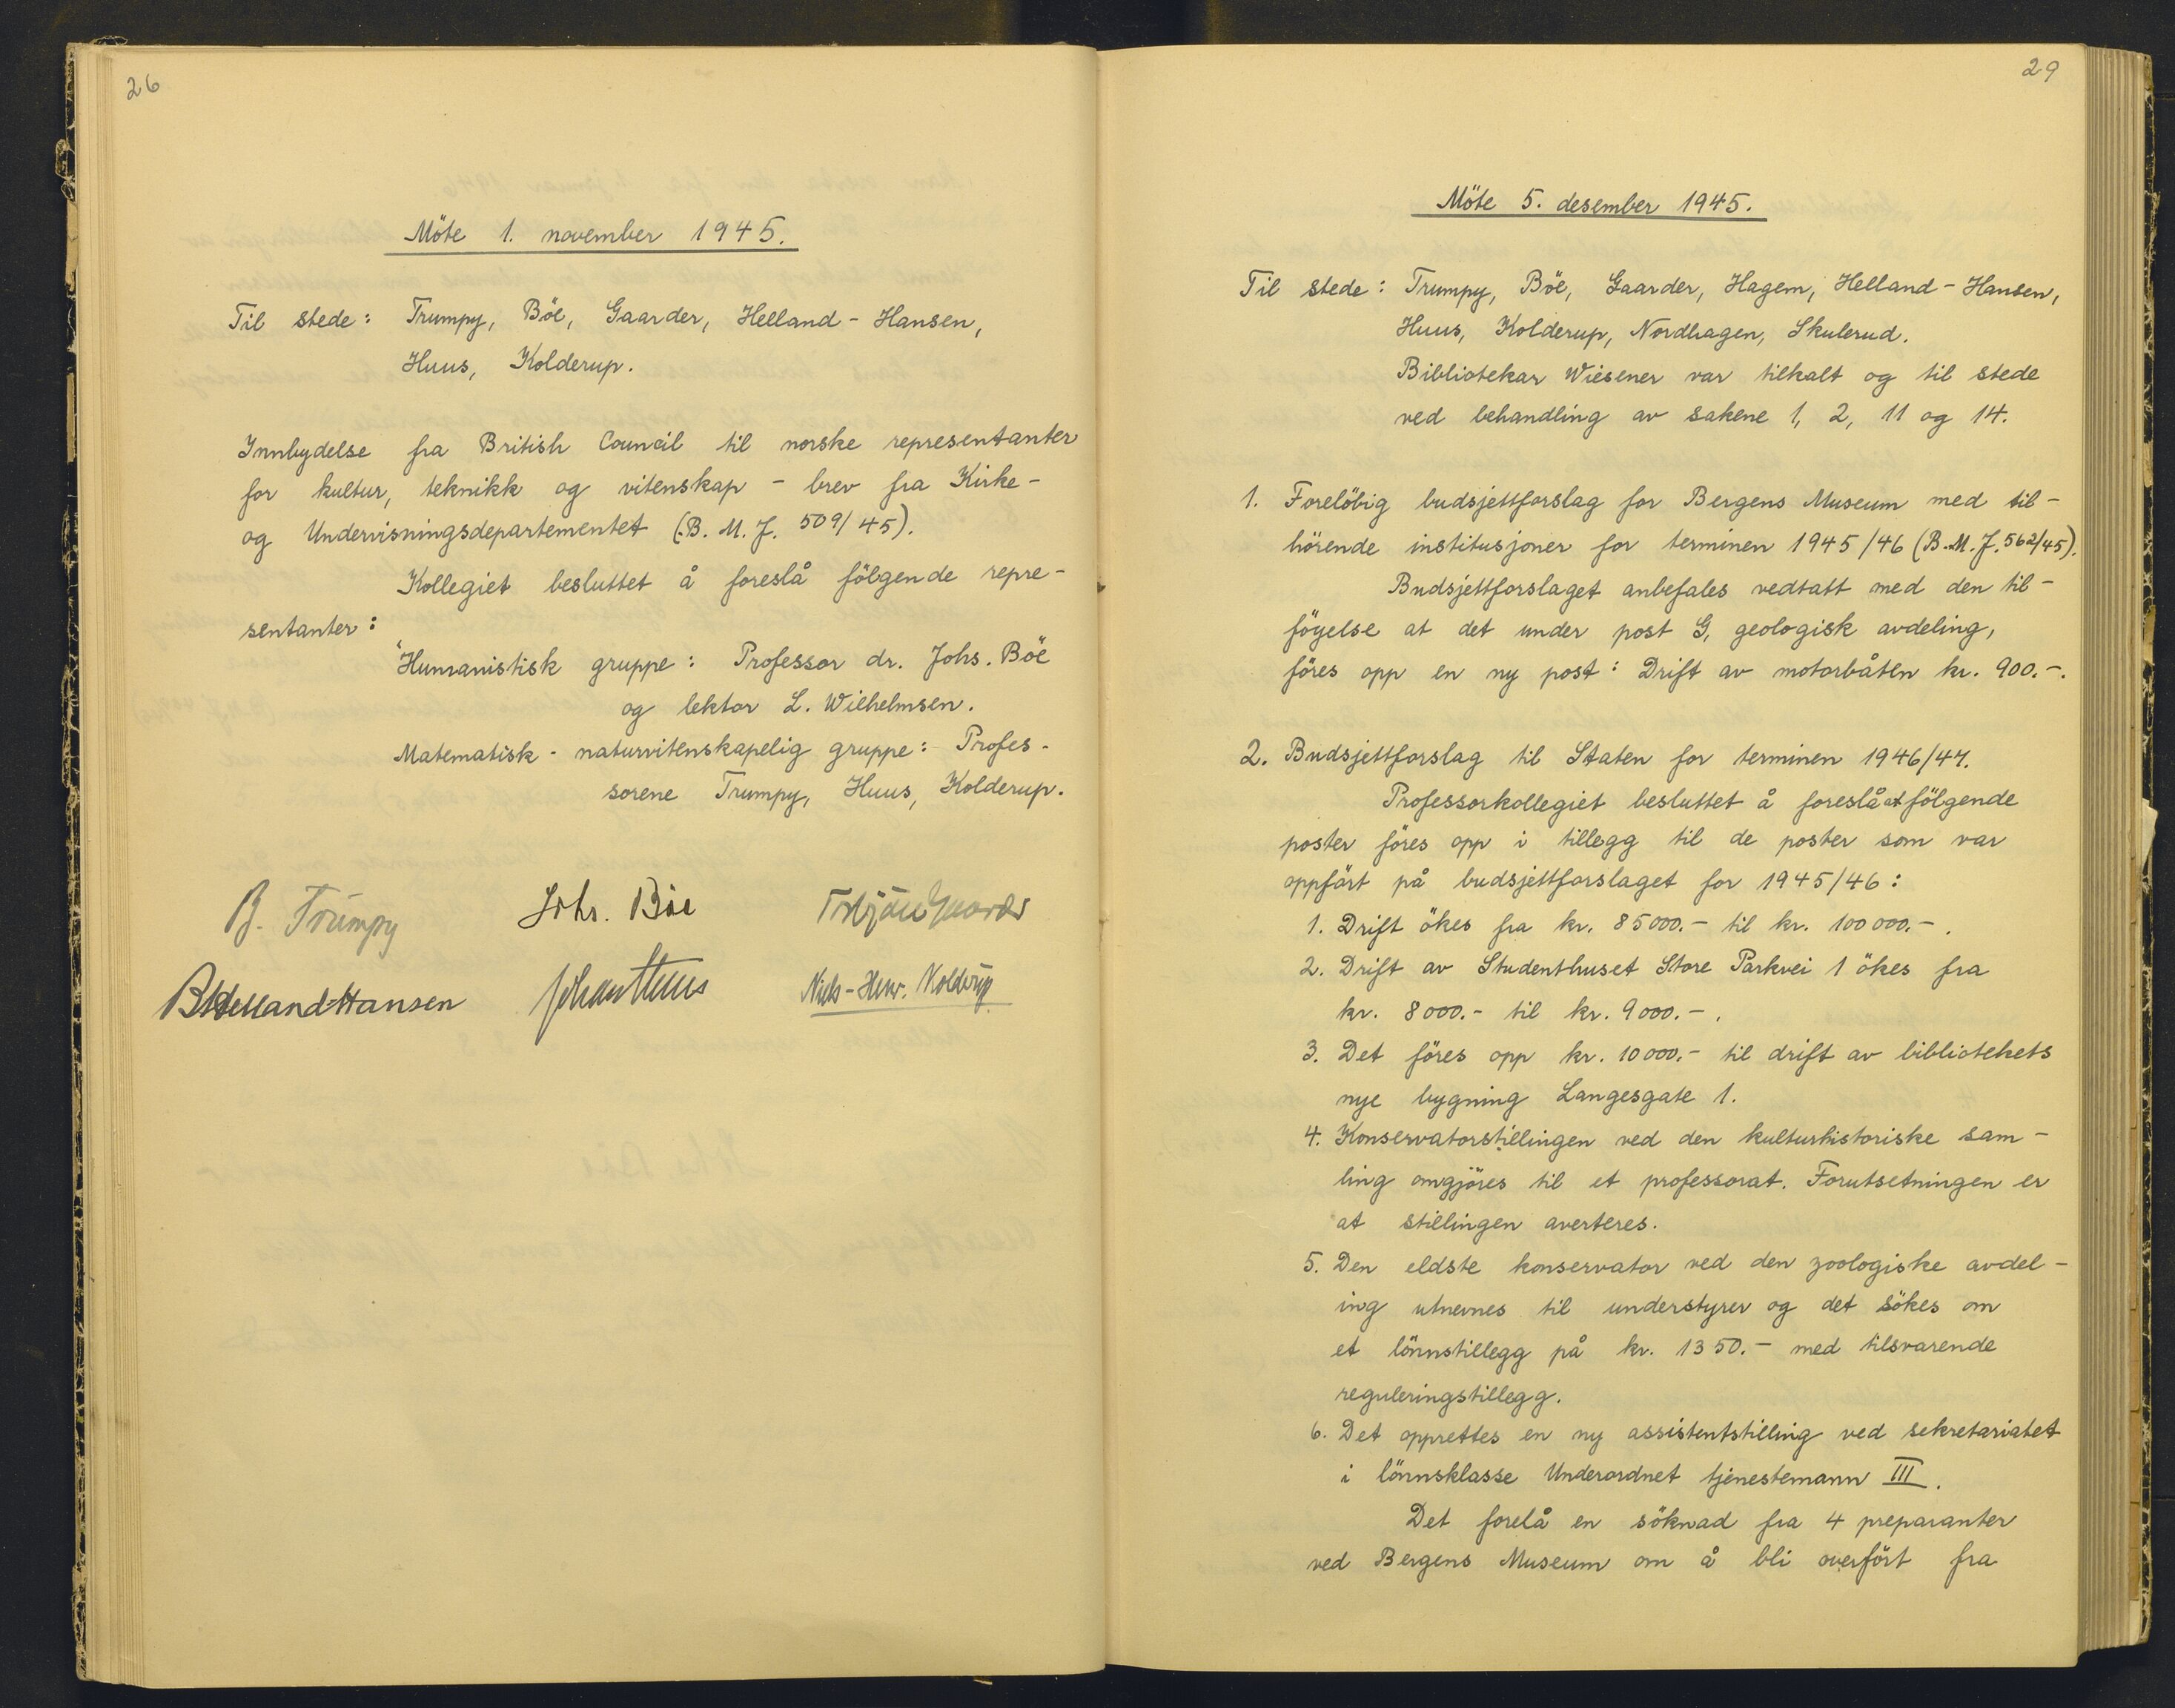 26
Möte 1. november 1945.
Til stede: Trumpy, Böe, Gaarder, Helland-Hansen,
Huus, Kolderup.
Innbydelse fra British Council til norske representanter
for kultur, teknikk og vitenskap - brev fra Kirke-
og Undervisningsdepartementet (B. M. J. 509/45).
Kollegiet besluttet å foreslå fölgende repre-
sentanter:
Humanistisk gruppe: Professor dr. Johs. Böe
og lektor L. Wilhelmsen.
Matematisk-naturvitenskapelig gruppe: Profes-
sorene Trumpy, Huus, Kolderup.
B. Trumpy Johs. Böe Torbjörn Gaarder
B Helland-Hansen Johan Huus Niels-Henr. Kolderup
29
Möte 5. desember 1945.
Til stede: Trumpy, Böe, Gaarder, Hagem, Helland-Hansen,
Huus, Kolderup, Nordhagen, Skulerud.
Bibliotekar Wiesener var tilkalt og til stede
ved behandling av sakene 1, 2, 11 og 14.
1. Forelöbig budsjettforslag for Bergens Museum med til-
hörende institusjoner for terminen 1945/46 (B.M.J. 562/45).
Budsjettforslaget anbefales vedtatt med den til-
föyelse at det under post G, geologisk avdeling,
föres opp en ny post: Drift av motorbåten kr. 900.-.
2. Budsjettforslag til Staten for terminen 1946/47.
Professorkollegiet besluttet å foreslå at fölgende
poster föres opp i tillegg til de poster som var
oppfört på budsjettforslaget for 1945/46:
1. Drift ökes fra kr. 85000.- til kr. 100000.-.
2. Drift av Studenthuset Store Parkvei 1 ökes fra
kr. 8000.- til kr. 9000.-.
3. Det föres opp kr. 10000.- til drift av bibliotekets
nye bygning Langesgate 1.
4. Konservatorstillingen ved den kulturhistoriske sam-
ling omgjöres til et professorat. Forutsetningen er
at stillingen averteres.
5. Den eldste konservator ved den zoologiske avdel-
ing utnevnes til understyrer og det sökes om
et lönnstillegg på kr. 1350.- med tilsvarende
reguleringstillegg.
6. Det opprettes en ny assistentstilling ved sekretariatet
i lönnsklasse Underordnet tjenestemann III.
Det forelå en söknad fra 4 preparanter
ved Bergens Museum om å bli overfört fra